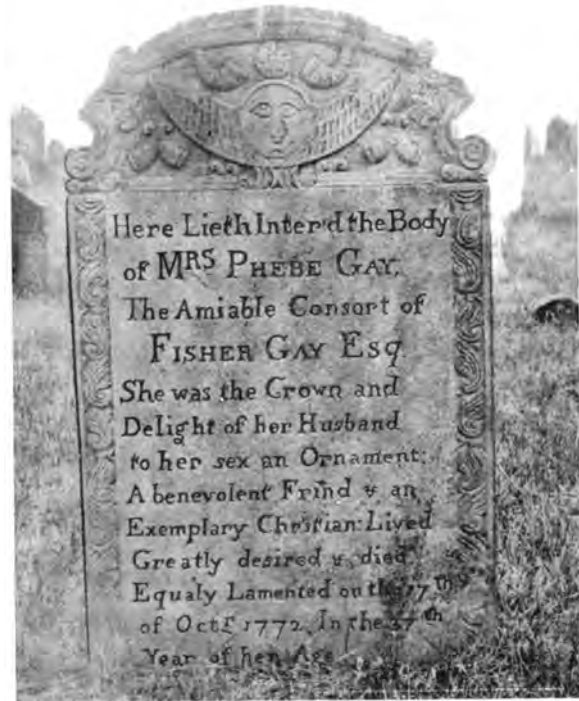 Here Lieth Inter'd the Body
of Mrs Phebe Gay,
The Amiable Consort of
Fisher Gay Esq.
She was the Crown and
Delight of her Husband
to her sex an Ornament;
A benevolent Frind & an
Exemplary Christian: Lived
Greatly desired & died
Equaly Lamented on the 17th
of Octr 1772, In the 37th
Year of her Age